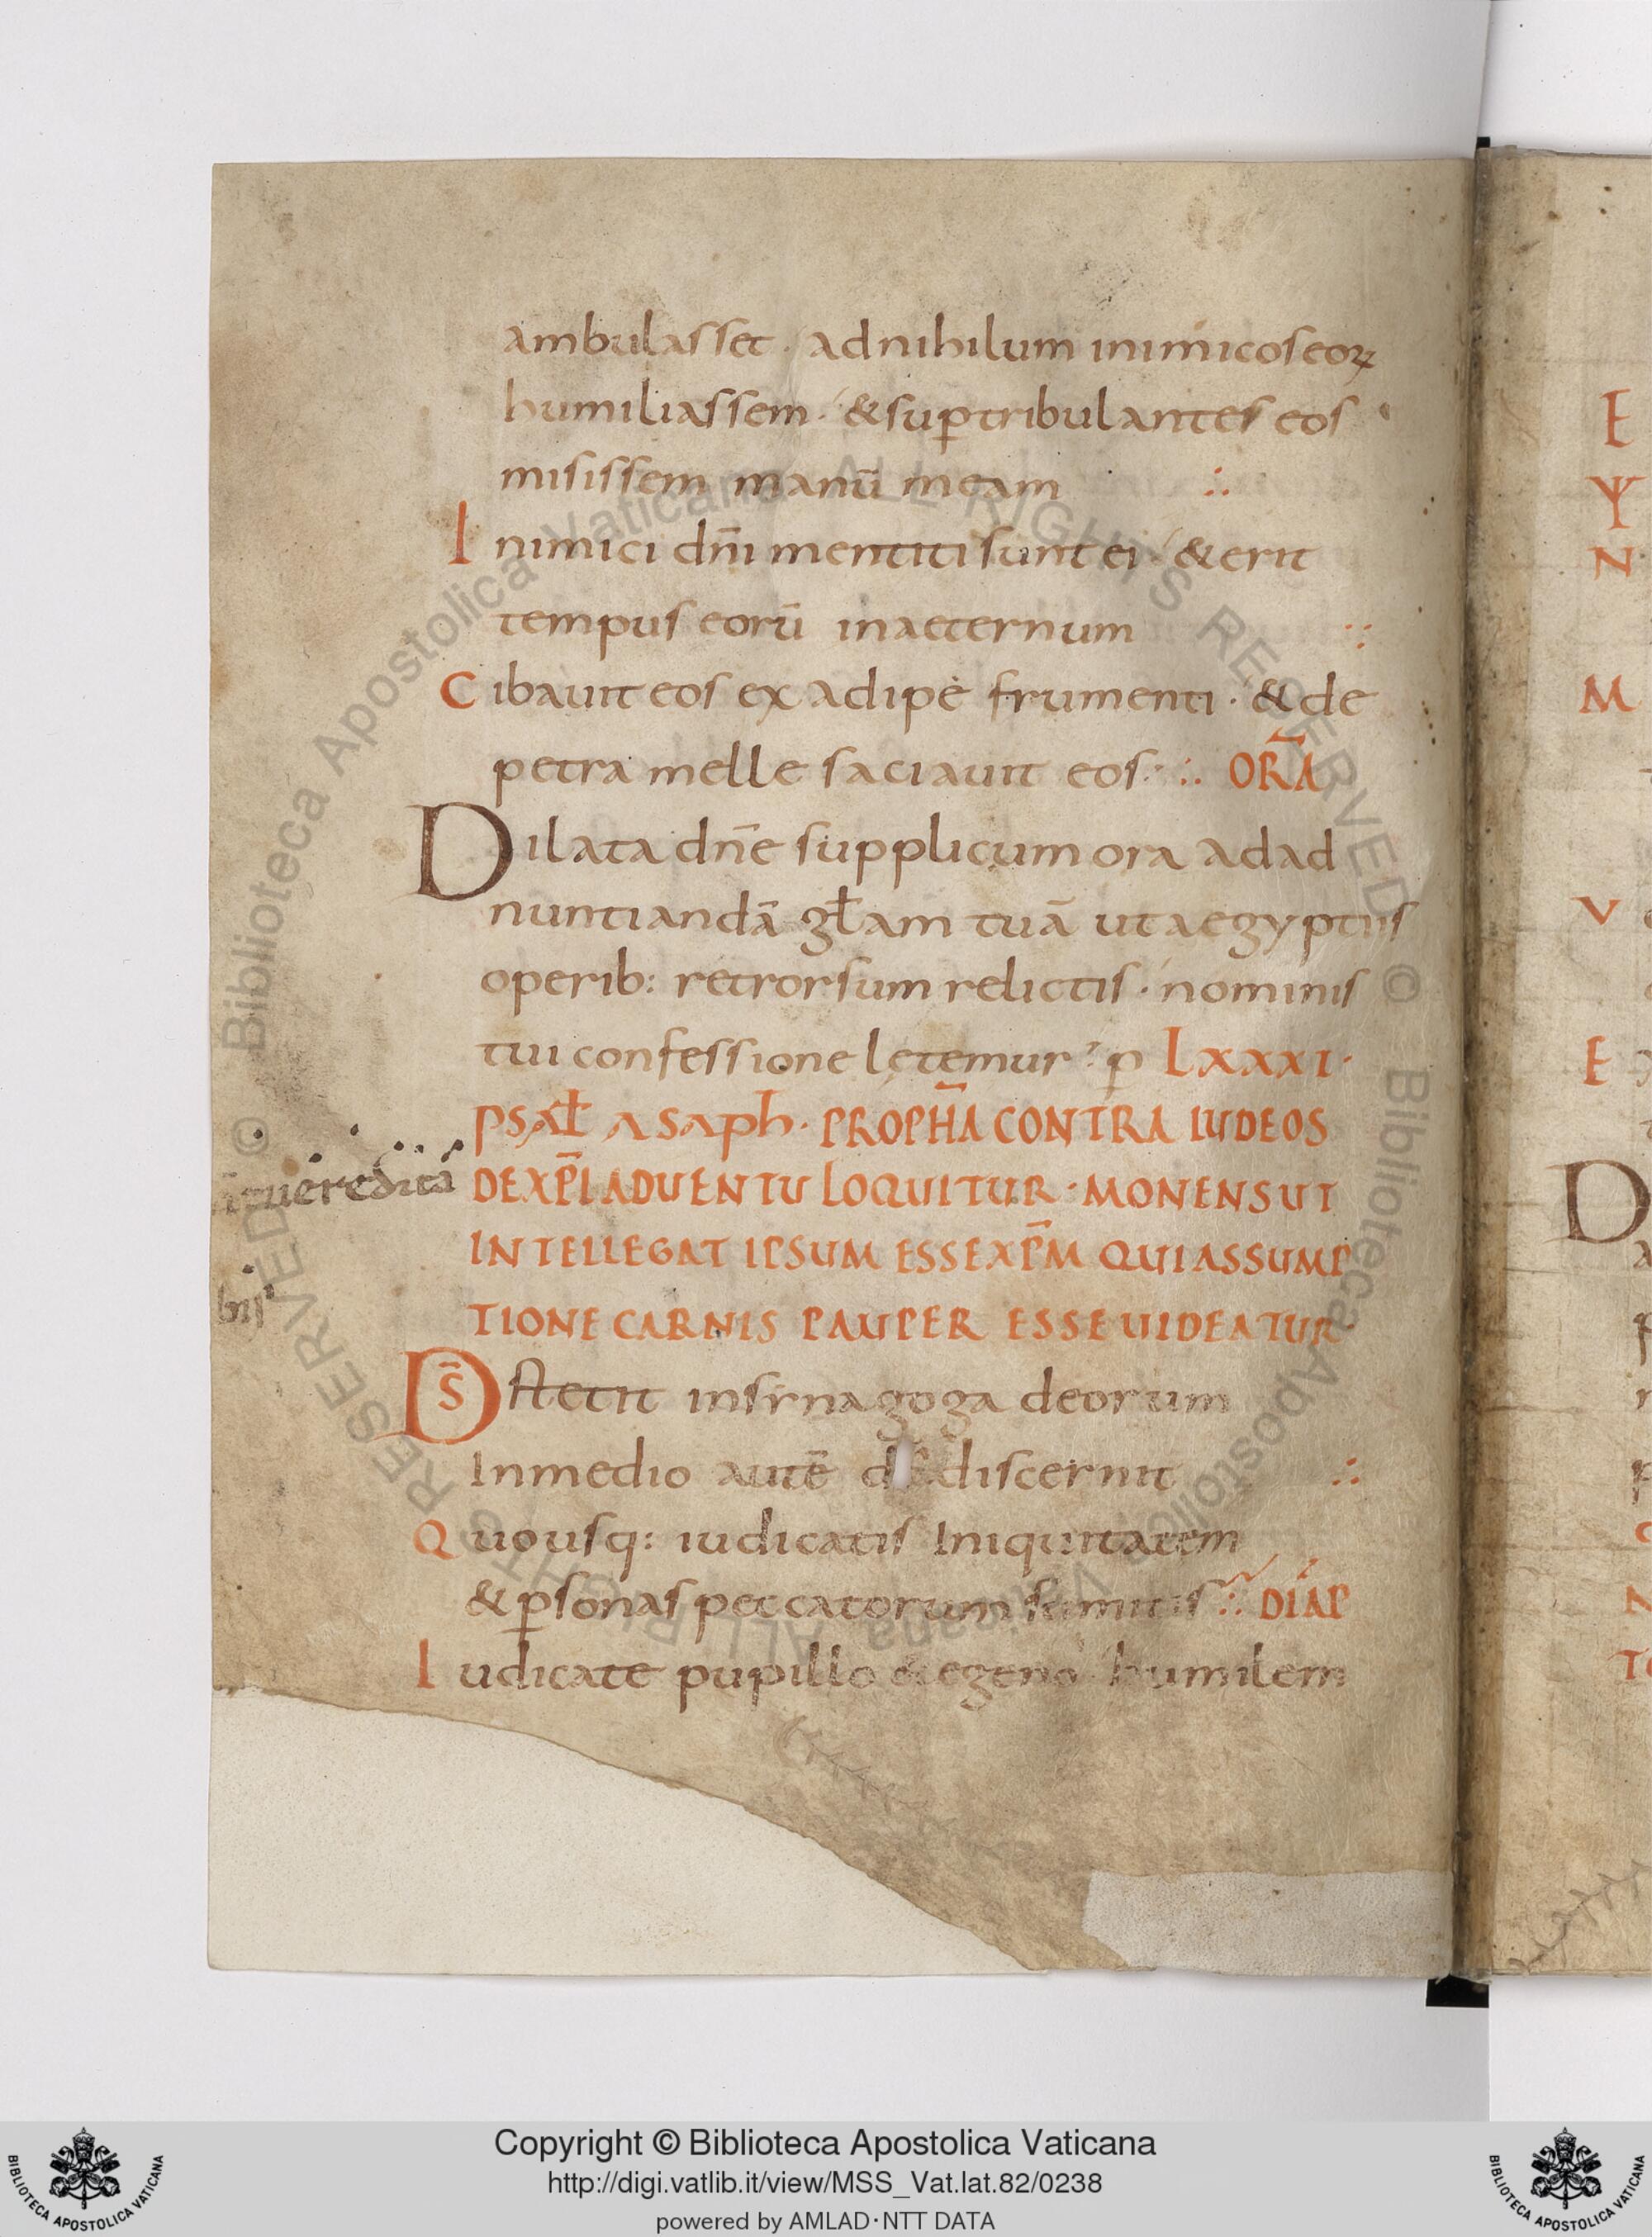 ambulasset · adnihilum inimicos eoꝝ
humiliassem · & suꝑ tribulantes eos
misissem manū meam ∴
Inimici dn̄i mentiti sunt ei · & erit
tempus eorū in aeternum ∴
Cibauit eos ex adipe frumenti · & de
petra melle saciauit eos ∴ OR̄A
Dilata dn̄e supplicum ora ad ad
nuntiandā gl̄am tuā ut aegyptiis
operib: retrorsum relictis · nominis
tui confessione lętemur · p LXXXI ·
psal̄ Asaph · PROPH̄A CONTRA IUDEOS
DE XP̄I ADUENTU LOQUITUR · MONENS UT
INTELLEGAT IPSUM ESSE XP̄M QUI ASSUMP
TIONE CARNIS PAUPER ESSE UIDEATUR
DS̄ stetit in sinagoga deorum
In medio autē discernit ∴
Quousq: iudicatis Iniquitatem
& ꝑsonas peccatorum sumitis ∴ DIAP
Iudicate pupillo & egeno humilem
E
Ψ
N
M
V
E
D
© Biblioteca Apostolica Vaticana ALL RIGHTS RESERVED © Biblioteca Apostolica Vaticana ALL RIGHTS RESERVED
Copyright © Biblioteca Apostolica Vaticana
http://digi.vatlib.it/view/MSS_Vat.lat.82/0238
powered by AMLAD·NTT DATA
BIBLIOTECA APOSTOLICA VATICANA
BIBLIOTECA APOSTOLICA VATICANA